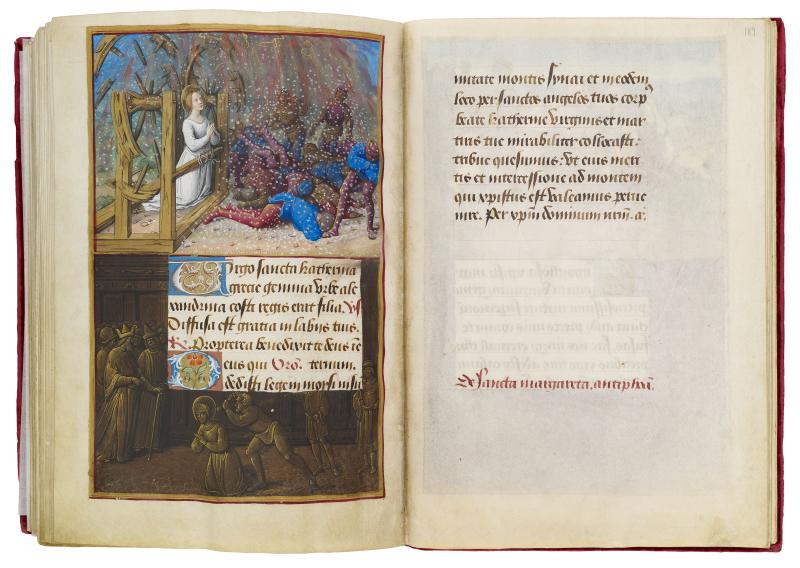 Virgo sancta katherina
grecie gemma urbe ale
xandrina costi regis erat filia. Vs
Diffusa est gratia in labiis tuis.
R. Propterea benedixit te deus in e
Deus qui Oro. ternum.
dedisti legem moysi in su
189
mitate montis synai et in eodem
loco per sanctos angelos tuos corpꝰ
beate katherine virginis et mar
tiris tue mirabiliter collocasti:
tribue quesumus: ut eius meri
tis et intercessione ad montem
qui xpistus est valeamus perue
nire. Per xpm̄ dominum nrm̄. a:
De sancta margareta, antiphoā.